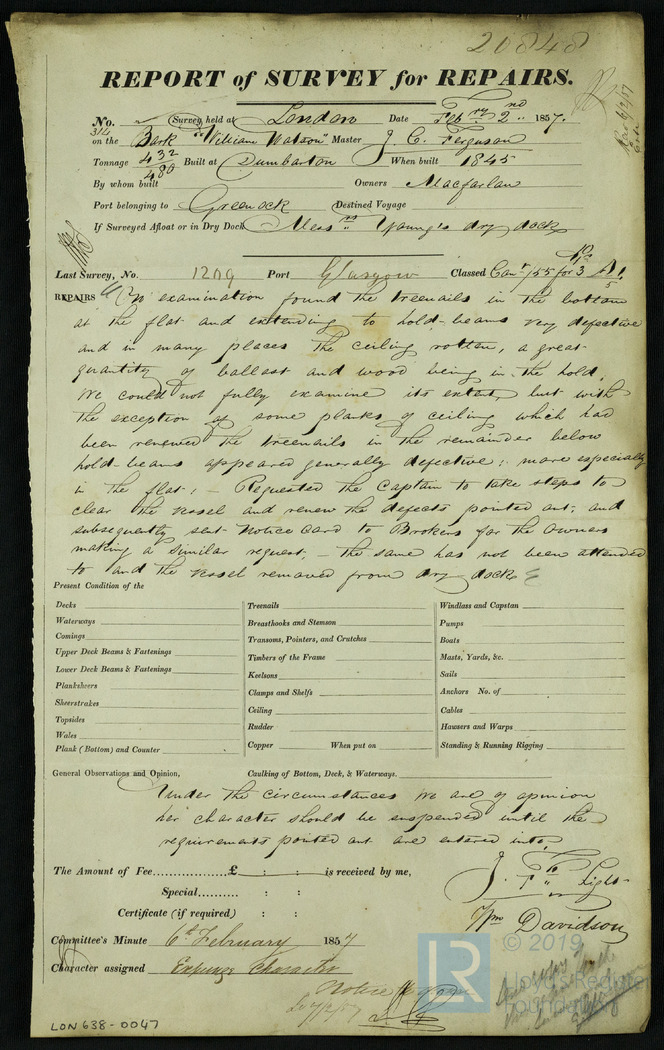 20848
REPORT of SURVEY for REPAIRS.
No. Survey held at London Date Feb ry 2nd 1857.
314
on the Bark "William Watson" Master J. C. Ferguson
Tonnage 432 Built at Dumbarton When built 1845
480
By whom built Owners Macfarlan
Port belonging to Greenock Destined Voyage
If Surveyed Afloat or in Dry Dock Mess rs Young's dry dock
Last Survey, No. 1209 Port Glasgow Classed Con t /55 for 3 A1
5
REPAIRS On examination found the treenails in the bottom
at the flat and extending to hold-beams very defective
and in many places the ceiling rotten, a great
quantity of ballast and wood being in the hold,
We could not fully examine its extent, but with
the exception of some planks of ceiling which had
been renewed the treenails in the remainder below
hold-beams appeared generally defective; more especially
in the flat; - Requested the Captain to take steps to
clear the vessel and renew the defects pointed out; and
subsequently sent Notice Card to Brokers for the owners
making a similar request, - the same has not been attended
to and the vessel removed from dry dock
Present Condition of the
Decks Treenails Windlass and Capstan
Waterways Breasthooks and Stemson Pumps
Comings Transoms, Pointers, and Crutches Boats
Upper Deck Beams & Fastenings Timbers of the Frame Masts, Yards, &c.
Lower Deck Beams & Fastenings Keelsons Sails
Planksheers Clamps and Shelfs Anchors No. of
Sheerstrakes Ceiling Cables
Topsides Rudder Hawsers and Warps
Wales Copper When put on Standing & Running Rigging
Plank (Bottom) and Counter
General Observations and Opinion, Caulking of Bottom, Deck, & Waterways.
Under the circumstances we are of opinion
her character should be suspended until the
requirements pointed out are entered into.
The Amount of Fee £ : : is received by me,
Special : :
Certificate (if required) : :
J. F. Light
Wm Davidson
Committee's Minute 6th February 1857
Character assigned Expunge Character
Notice
7/2/57
LON 638-0047
LR © 2019
Lloyd's Register
Foundation